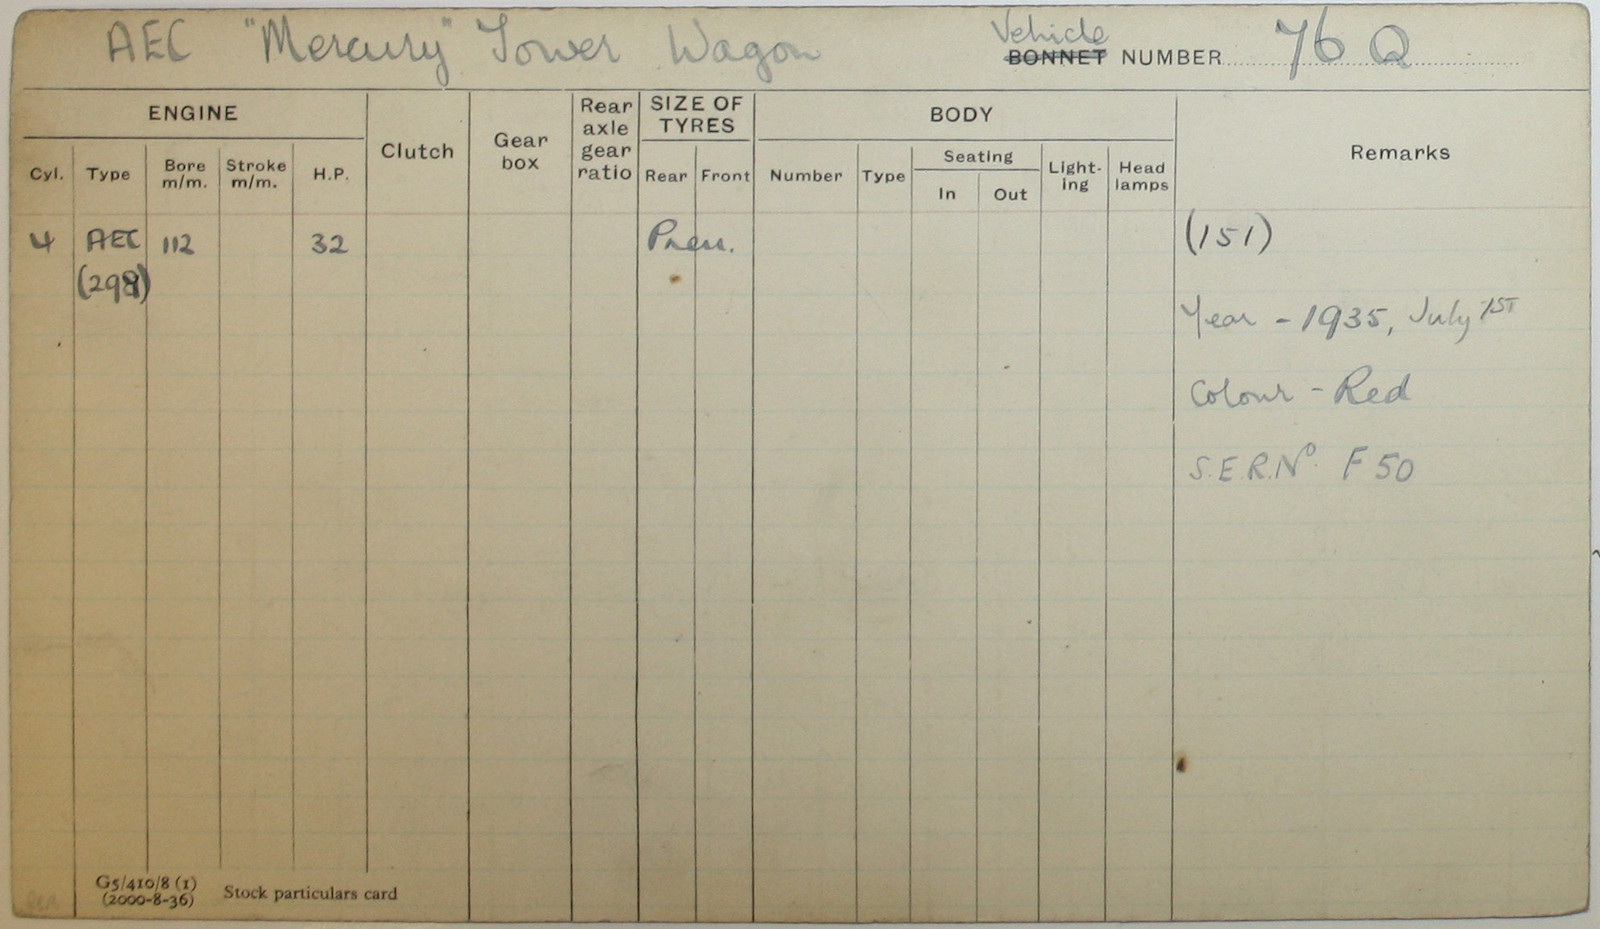 AEC "Mercury" Tower Wagon
Vehicle
BONNET NUMBER 76 Q
ENGINE
Cyl.
Type
Bore m/m.
Stroke m/m.
H.P.
Clutch
Gear box
Rear axle gear ratio
SIZE OF TYRES
Rear
Front
BODY
Number
Type
Seating
In
Out
Light-ing
Head lamps
Remarks
4 AEC 112 32 Pneu. (151)
(298)
Year - 1935, July 1ST
Colour - Red
S.E.R.No. F 50
G5/410/8 (1)
(2000-8-36)
Stock particulars card